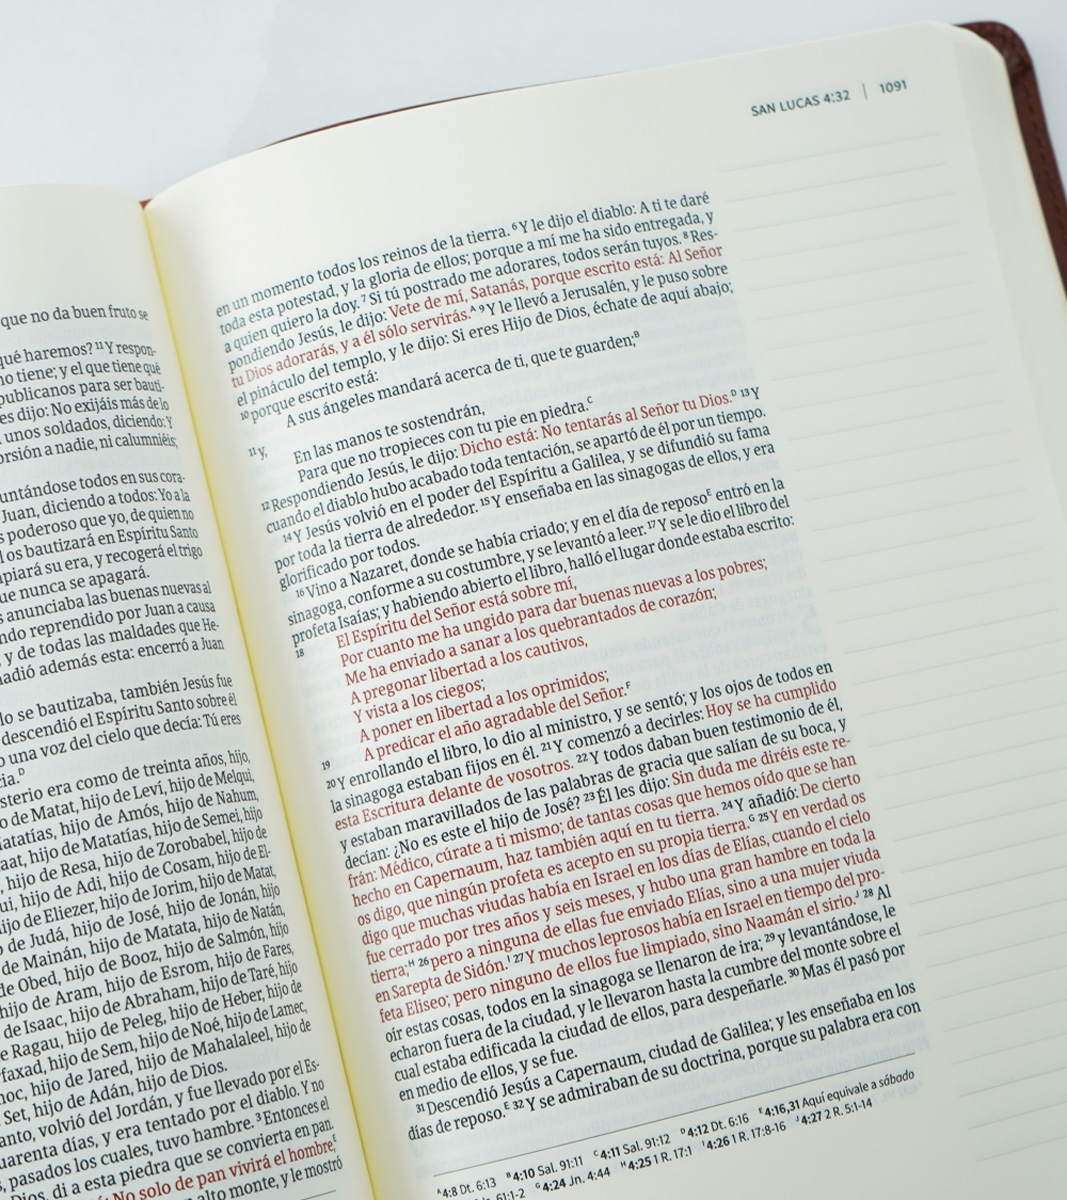 que no da buen fruto se
qué haremos? ¹¹Y respon-
no tiene; y el que tiene qué
publicanos para ser bauti-
es dijo: No exijáis más de lo
unos soldados, diciendo: Y
orsión a nadie, ni calumniéis;
untándose todos en sus cora-
Juan, diciendo a todos: Yo a la
s poderoso que yo, de quien no
l os bautizará en Espíritu Santo
piará su era, y recogerá el trigo
ue nunca se apagará.
s anunciaba las buenas nuevas al
ndo reprendido por Juan a causa
, y de todas las maldades que He-
ñadió además esta: encerró a Juan
lo se bautizaba, también Jesús fue
descendió el Espíritu Santo sobre él
o una voz del cielo que decía: Tú eres
cia.ᴰ
sterio era como de treinta años, hijo
o de Matat, hijo de Leví, hijo de Melqui,
Matatías, hijo de Amós, hijo de Nahum,
aat, hijo de Matatías, hijo de Semei, hijo
, hijo de Resa, hijo de Zorobabel, hijo de
ui, hijo de Adi, hijo de Cosam, hijo de El-
ijo de Eliezer, hijo de Jorim, hijo de Matat,
o de Judá, hijo de José, hijo de Jonán, hijo
de Mainán, hijo de Matata, hijo de Natán,
de Obed, hijo de Booz, hijo de Salmón, hijo
hijo de Aram, hijo de Esrom, hijo de Fares,
de Isaac, hijo de Abraham, hijo de Taré, hijo
e Ragau, hijo de Peleg, hijo de Heber, hijo de
rfaxad, hijo de Sem, hijo de Noé, hijo de Lamec,
noc, hijo de Jared, hijo de Mahalaleel, hijo de
Set, hijo de Adán, hijo de Dios.
anto, volvió del Jordán, y fue llevado por el Es-
uarenta días, y era tentado por el diablo. Y no
, pasados los cuales, tuvo hambre. ³Entonces el
Dios, di a esta piedra que se convierta en pan.
No solo de pan vivirá el hombre,ᴱ
alto monte, y le mostró
SAN LUCAS 4:32 | 1091
en un momento todos los reinos de la tierra. ⁶Y le dijo el diablo: A ti te daré
toda esta potestad, y la gloria de ellos; porque a mí me ha sido entregada, y
a quien quiero la doy. ⁷Si tú postrado me adorares, todos serán tuyos. ⁸Res-
pondiendo Jesús, le dijo: Vete de mí, Satanás, porque escrito está: Al Señor
tu Dios adorarás, y a él sólo servirás.ᴬ ⁹Y le llevó a Jerusalén, y le puso sobre
el pináculo del templo, y le dijo: Si eres Hijo de Dios, échate de aquí abajo;
¹⁰porque escrito está:
A sus ángeles mandará acerca de ti, que te guarden;ᴮ
¹¹y,
En las manos te sostendrán,
Para que no tropieces con tu pie en piedra.ᶜ
¹²Respondiendo Jesús, le dijo: Dicho está: No tentarás al Señor tu Dios.ᴰ ¹³Y
cuando el diablo hubo acabado toda tentación, se apartó de él por un tiempo.
¹⁴Y Jesús volvió en el poder del Espíritu a Galilea, y se difundió su fama
por toda la tierra de alrededor. ¹⁵Y enseñaba en las sinagogas de ellos, y era
glorificado por todos.
¹⁶Vino a Nazaret, donde se había criado; y en el día de reposoᴱ entró en la
sinagoga, conforme a su costumbre, y se levantó a leer. ¹⁷Y se le dio el libro del
profeta Isaías; y habiendo abierto el libro, halló el lugar donde estaba escrito:
¹⁸ El Espíritu del Señor está sobre mí,
Por cuanto me ha ungido para dar buenas nuevas a los pobres;
Me ha enviado a sanar a los quebrantados de corazón;
A pregonar libertad a los cautivos,
Y vista a los ciegos;
A poner en libertad a los oprimidos;
¹⁹ A predicar el año agradable del Señor.ꟳ
²⁰Y enrollando el libro, lo dio al ministro, y se sentó; y los ojos de todos en
la sinagoga estaban fijos en él. ²¹Y comenzó a decirles: Hoy se ha cumplido
esta Escritura delante de vosotros. ²²Y todos daban buen testimonio de él,
y estaban maravillados de las palabras de gracia que salían de su boca, y
decían: ¿No es este el hijo de José? ²³Él les dijo: Sin duda me diréis este re-
frán: Médico, cúrate a ti mismo; de tantas cosas que hemos oído que se han
hecho en Capernaum, haz también aquí en tu tierra. ²⁴Y añadió: De cierto
os digo, que ningún profeta es acepto en su propia tierra.ᴳ ²⁵Y en verdad os
digo que muchas viudas había en Israel en los días de Elías, cuando el cielo
fue cerrado por tres años y seis meses, y hubo una gran hambre en toda la
tierra;ᴴ ²⁶pero a ninguna de ellas fue enviado Elías, sino a una mujer viuda
en Sarepta de Sidón.ᴵ ²⁷Y muchos leprosos había en Israel en tiempo del pro-
feta Eliseo; pero ninguno de ellos fue limpiado, sino Naamán el sirio.ᴶ ²⁸Al
oír estas cosas, todos en la sinagoga se llenaron de ira; ²⁹y levantándose, le
echaron fuera de la ciudad, y le llevaron hasta la cumbre del monte sobre el
cual estaba edificada la ciudad de ellos, para despeñarle. ³⁰Mas él pasó por
en medio de ellos, y se fue.
³¹Descendió Jesús a Capernaum, ciudad de Galilea; y les enseñaba en los
días de reposo.ᴱ ³²Y se admiraban de su doctrina, porque su palabra era con
ᴬ4:8 Dt. 6:13 ᴮ4:10 Sal. 91:11 ᶜ4:11 Sal. 91:12 ᴰ4:12 Dt. 6:16 ᴱ4:16,31 Aquí equivale a sábado
61:1-2 ᴳ4:24 Jn. 4:44 ᴴ4:25 1 R. 17:1 ᴵ4:26 1 R. 17:8-16 ᴶ4:27 2 R. 5:1-14